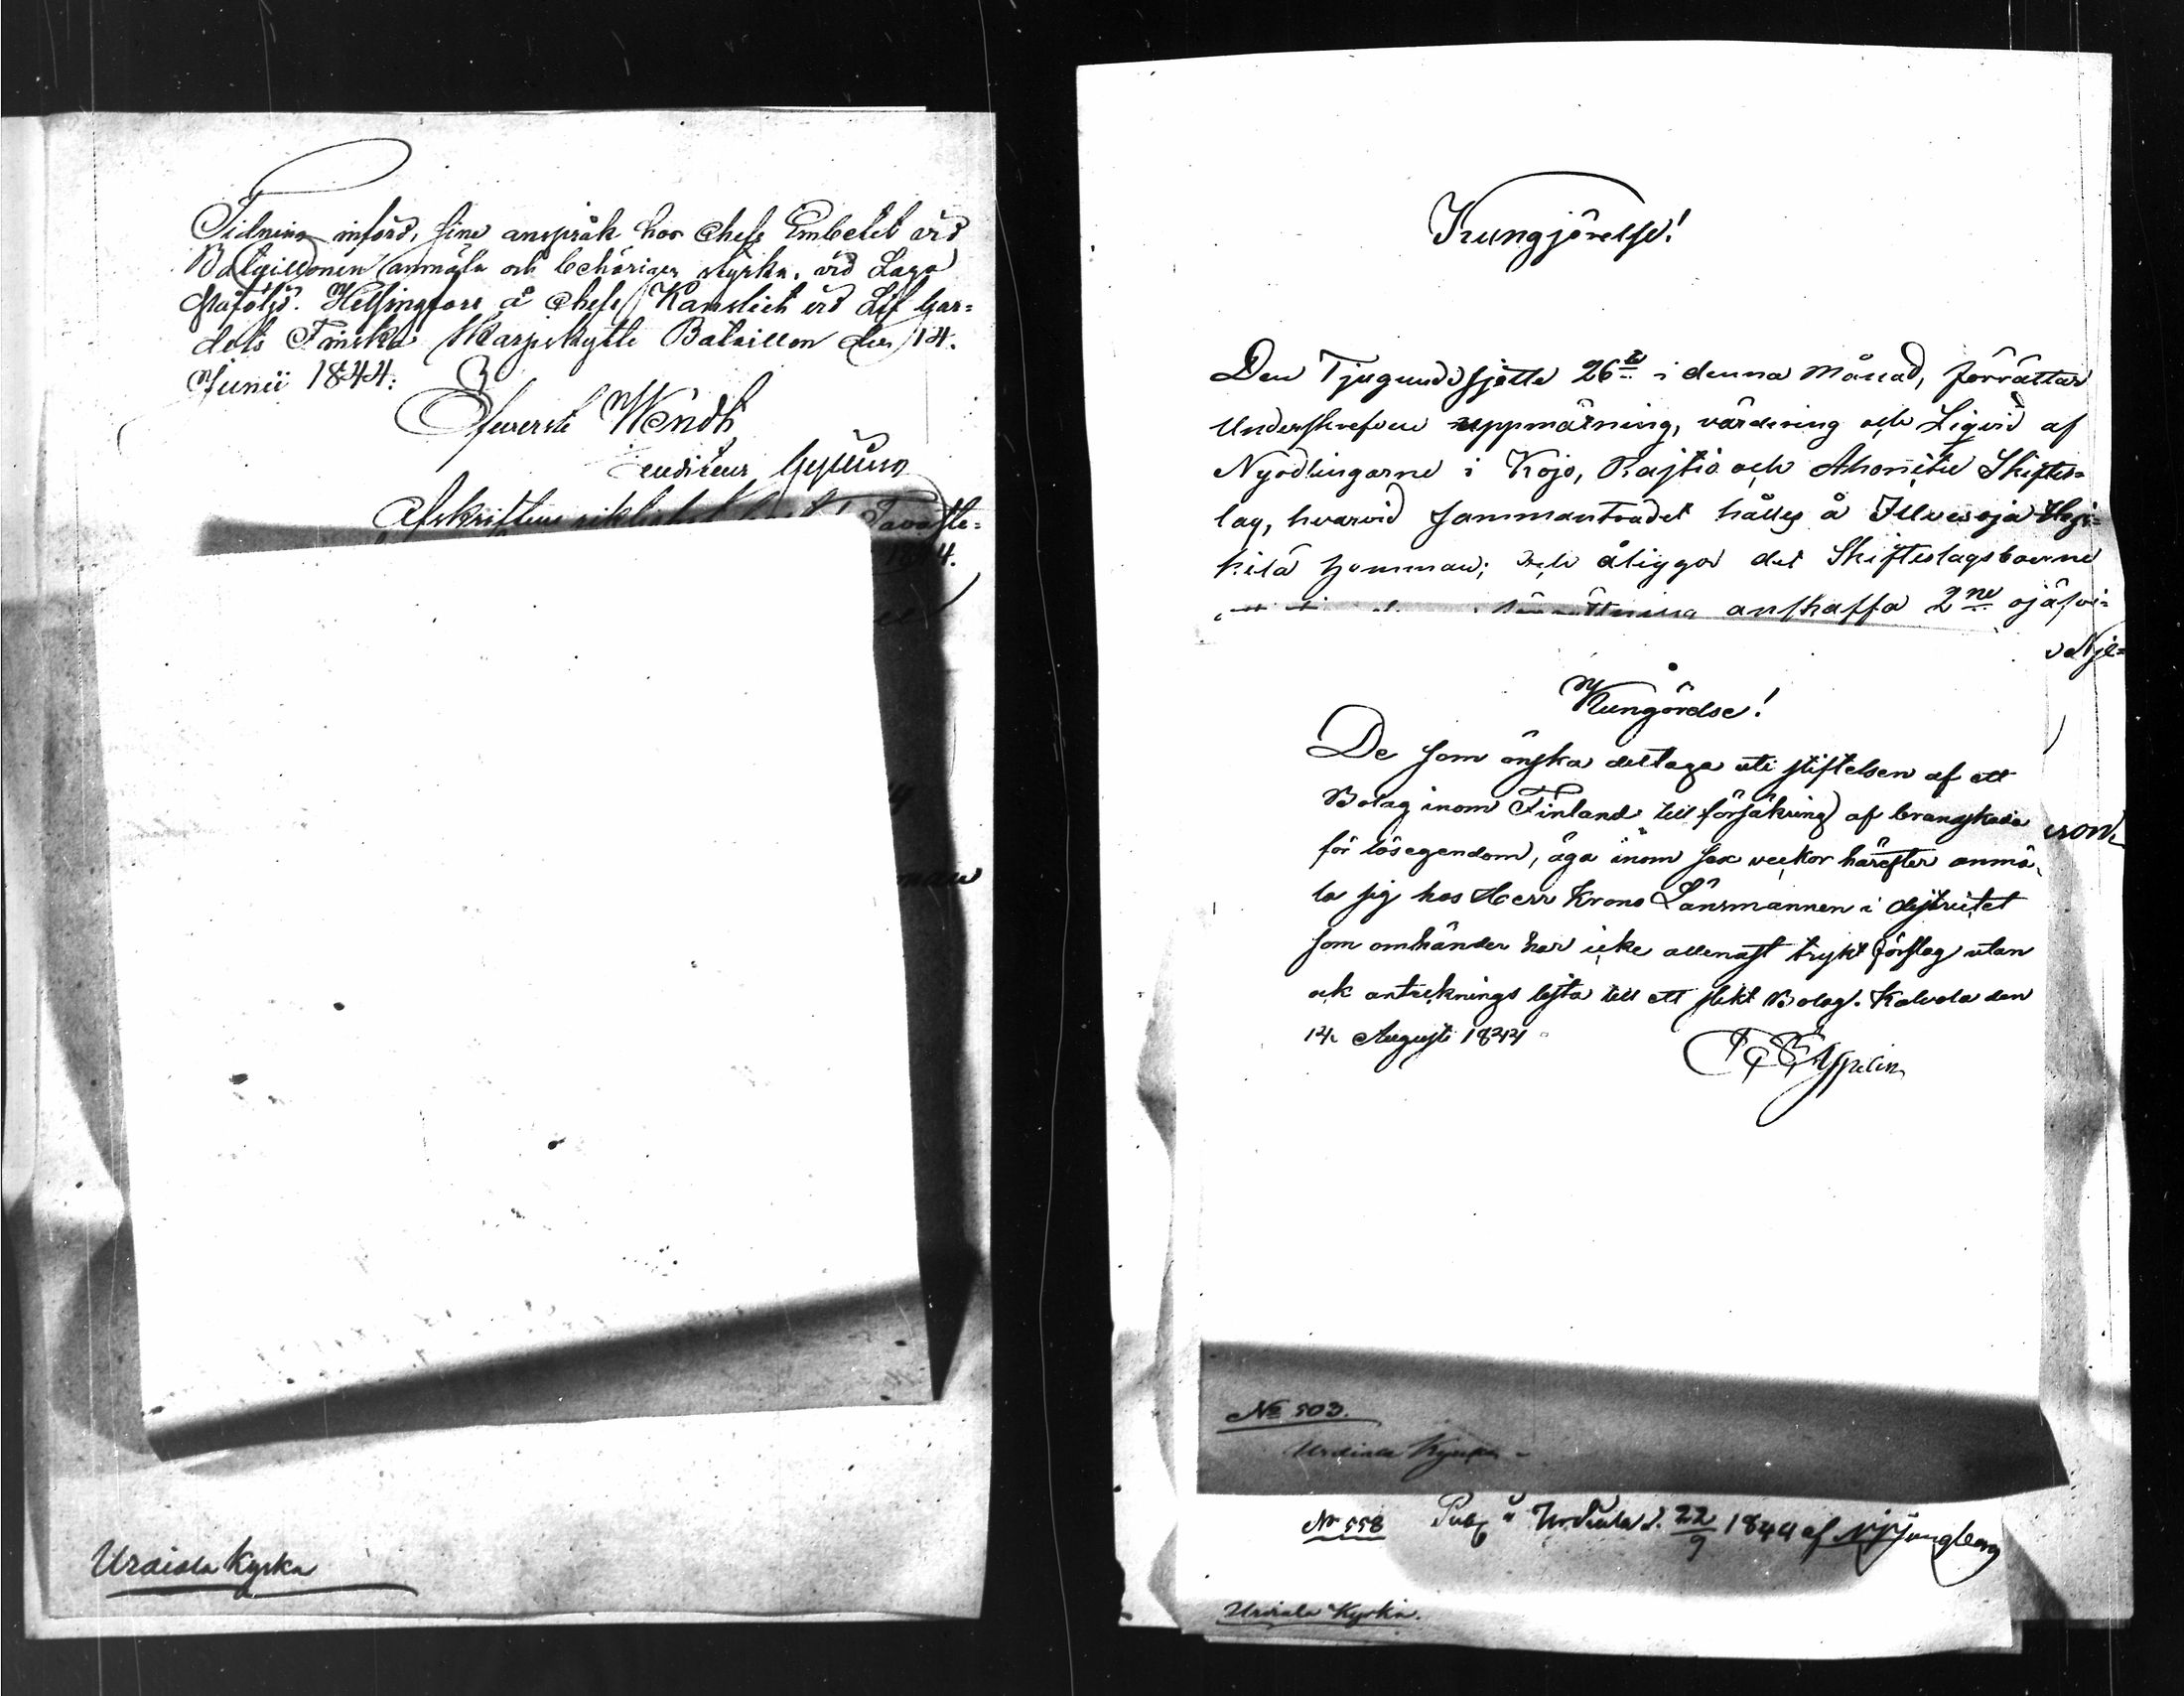 Tidning införd, sine anspråk hos Chefs Embetet vid
Bataillonen anmäla och behörigen styrka, vid Laga
påföljd. Helsingfors å Chefs Kansliet vid Lif Gar=
dets Finska Skarpskytte Bataillon den 14.
Junii 1844.
Öfverste Wendt
Auditeur
Afskriftens riktighet Tavaste=
1844.
Urdiala Kyrka
Kungjörelse!
Den Tjugundesjette 26te i denna Månad, förrättar
Underskrefven uppmätning, värdering och Liqvid af
Nyodlingarne i Kojo, Rajtio och Ahonitu Skiftes=
lag, hvarvid sammanträdet hålles å Illvesoja
kilä hemman; och åligger det Skifteslagsboerne
anskaffa 2ne ojäfvi=
Kungörelse!
De som önska deltaga uti stiftelsen af ett
Bolag inom Finland till försäkring af brandskada
för lösegendom, äga inom sex veckor härefter anmä=
la sig hos Herr Krono Länsmannen i distriktet
som omhänder har icke allenast trykt förslag utan
ock anteknings lista till ett slikt Bolag. Kalvola den
14. Augusti 1844
Appelin
No 503.
Urdiala Kyrka
No 558 Publ. i Urdiala d. 22/9 1844 af Ljungberg
Urdiala Kyrka.